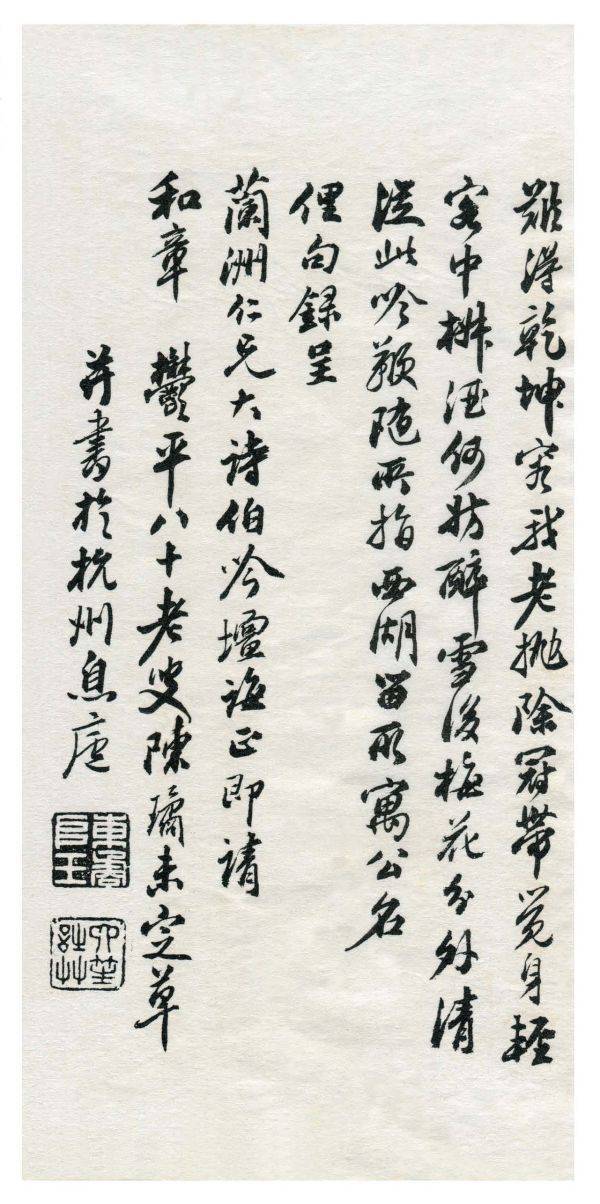 難得乾坤容我老拋除冠帶覺身輕
客中梆酒何妨醉雪後梅花分外清
從此吟鞭隨所指西湖留所寓公名
俚句錄呈
蘭洲仁兄大詩伯吟壇誨正即請
和章 鬱平八十老叟陳璚未定草
并書於杭州息廬